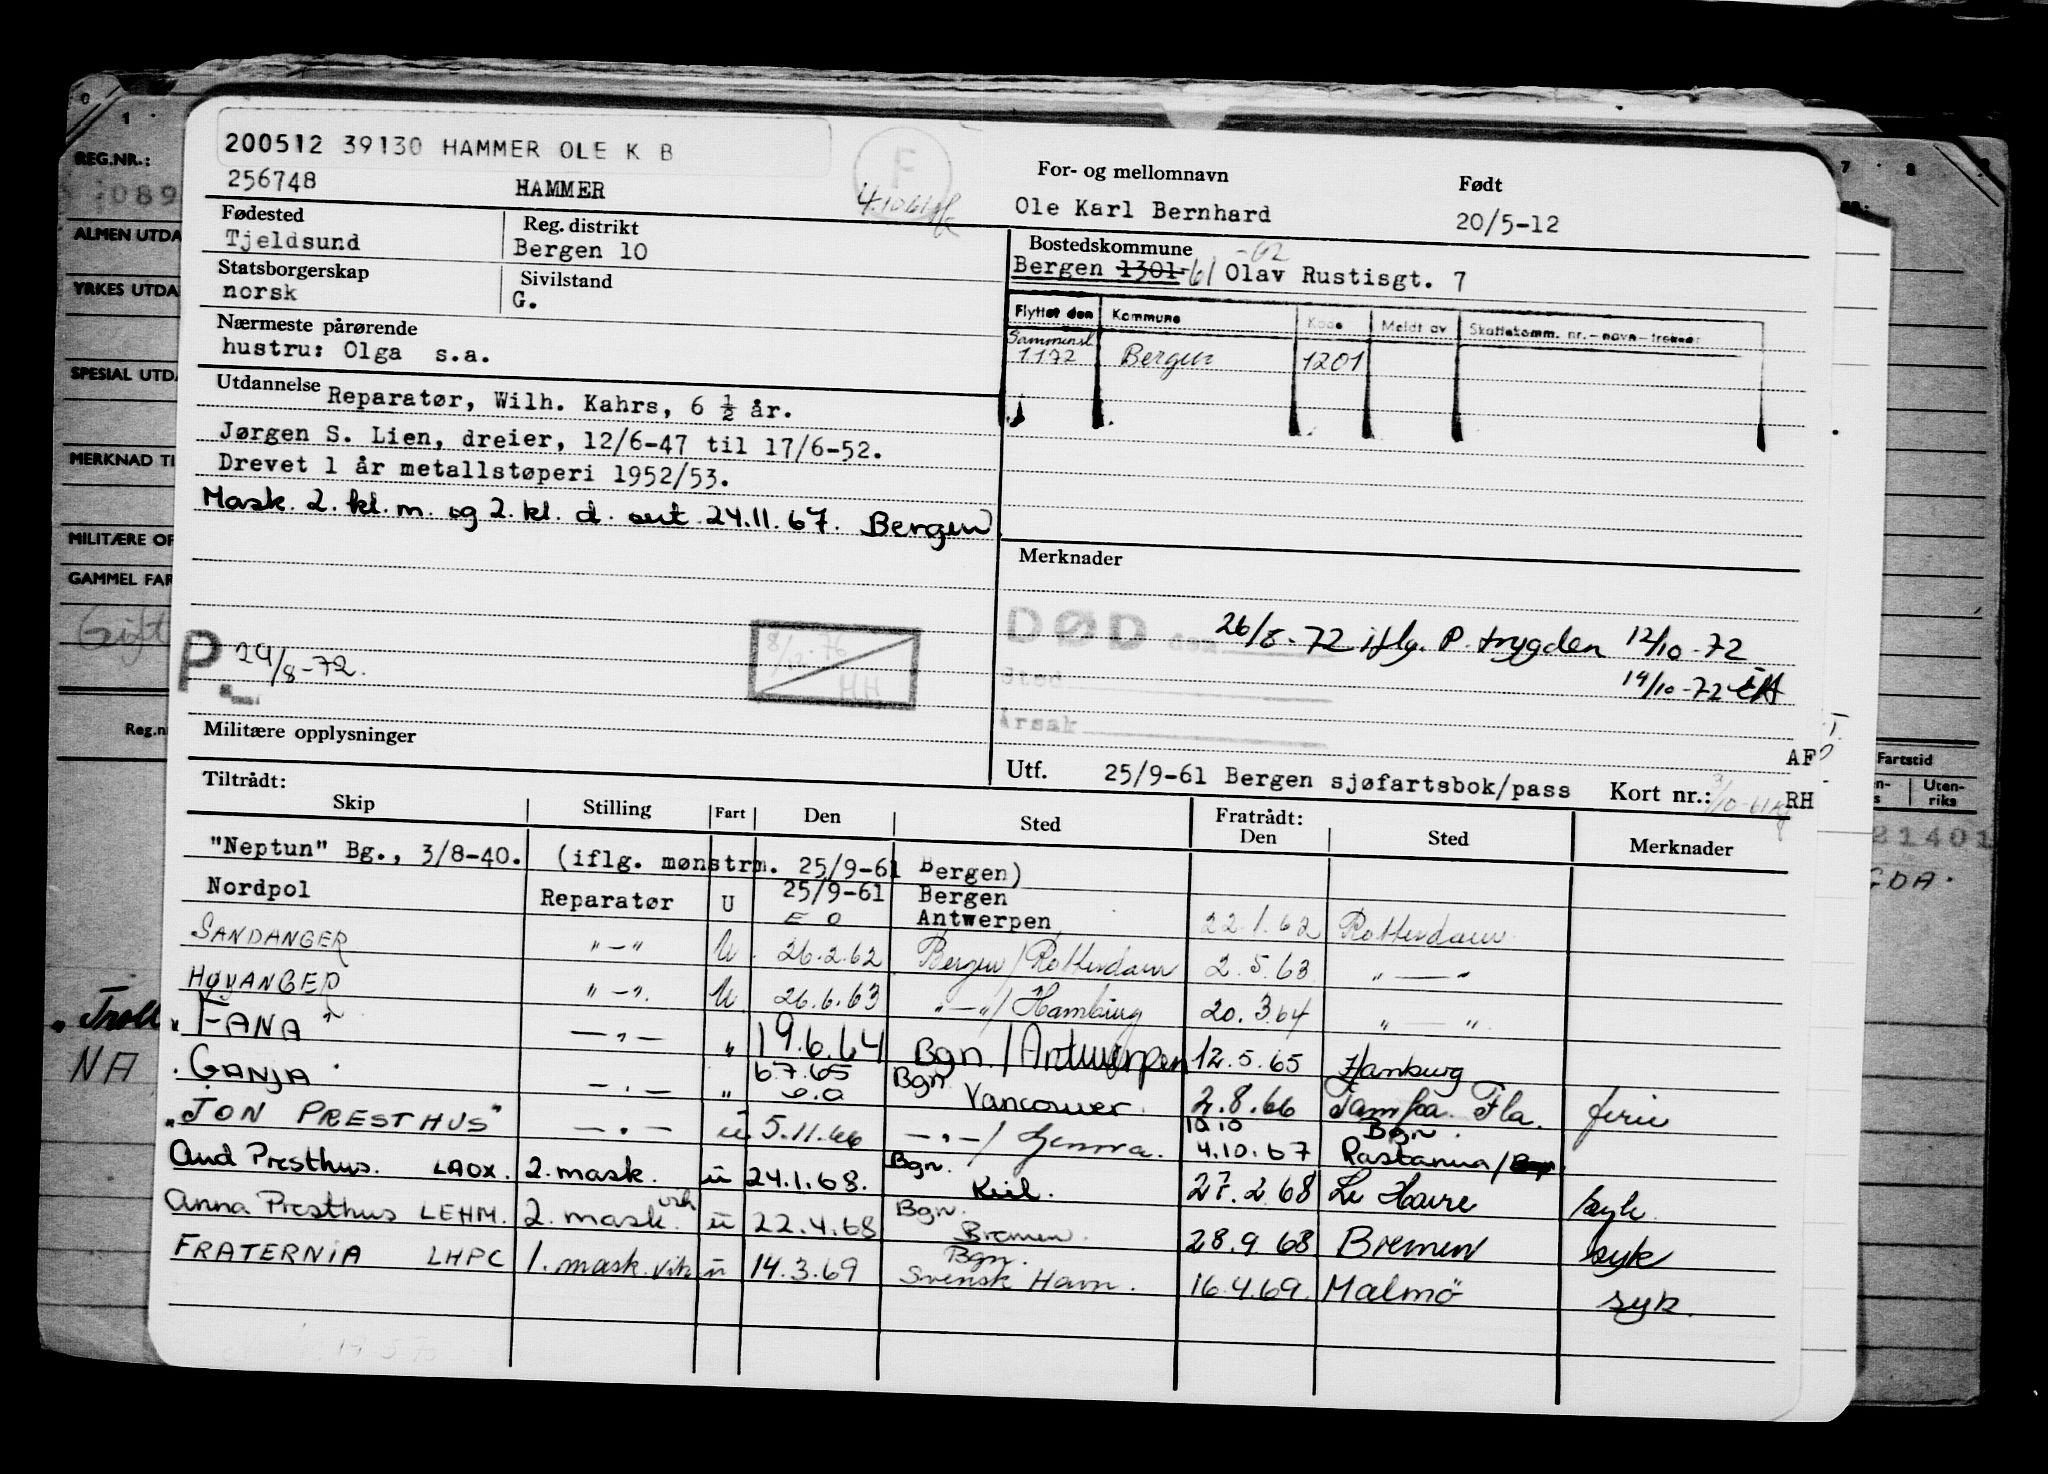 200512 39130 HAMMER OLE K B
256748 HAMMER
For- og mellomnavn Født
Ole Karl Bernhard 20/5-12
Fødested Reg. distrikt
Tjeldsund Bergen 10
Statsborgerskap Sivilstand
norsk G.
Bostedskommune
Bergen 1301 61 Olav Rustisgt. 7
Nærmeste pårørende
hustru: Olga s.a.
Flyttet den Kommune Kode Meldt av Skattekomm. nr.–navn–trekkår
Sammensl.
1.1 72 Bergen 1201
Utdannelse Reparatør, Wilh. Kahrs, 6 ½ år.
Jørgen S. Lien, dreier, 12/6-47 til 17/6-52.
Drevet 1 år metallstøperi 1952/53.
Mask. 2. kl. m. og 2. kl. d. sert. 24.11.67. Bergen
Merknader
DØD den 26/8-72 iflg. P. trygden 12/10-72
Sted 19/10-72
Årsak
P 24/8-72.
8/12-76
HH
Militære opplysninger
Utf. 25/9-61 Bergen sjøfartsbok/pass Kort nr.: RH
AF
Tiltrådt: Fratrådt:
Skip Stilling Fart Den Sted Den Sted Merknader
"Neptun" Bg., 3/8-40. (iflg. mønstrm. 25/9-61 Bergen)
Nordpol Reparatør U 25/9-61 Bergen
E O Antwerpen 22.1.62 Rotterdam
SANDANGER "–" U 26.2.62 Bergen/Rotterdam 2.5.63 " — "
HØYANGER "–" U 26.6.63 "–"/Hamburg 20.3.64 " — "
"FANA" —"— " 19.6.64 Bgn./Antwerpen 12.5.65 Hamburg
"GANJA" —"— " 6.7.65 Bgn.
e.o Vancouver. 2.8.66 Tampa. Fla. ferie
"JON PRESTHUS" —"— u 5.11.66 —"—/Genova. 4.10.67 Bgn.
Aud Presthus. LAOX. 2. mask. u 24.1.68. Bgn.
Kiel. 27.2.68 Le Havre syk.
Anna Presthus LEHM. 2. mask. vik u 22.4.68 Bgn.
Bremen. 28.9.68 Bremen syk
FRATERNIA LHPC 1. mask. vik u 14.3.69 Bgn.
Svensk Havn. 16.4.69. Malmö syk.
REG.NR.:
ALMEN UTDA
YRKES UTDA
SPESIAL UTDA
MERKNAD TI
MILITÆRE OF
GAMMEL FAR
Gift
Reg.n
"Troll
NA
Fartstid
Uten-
riks
21401